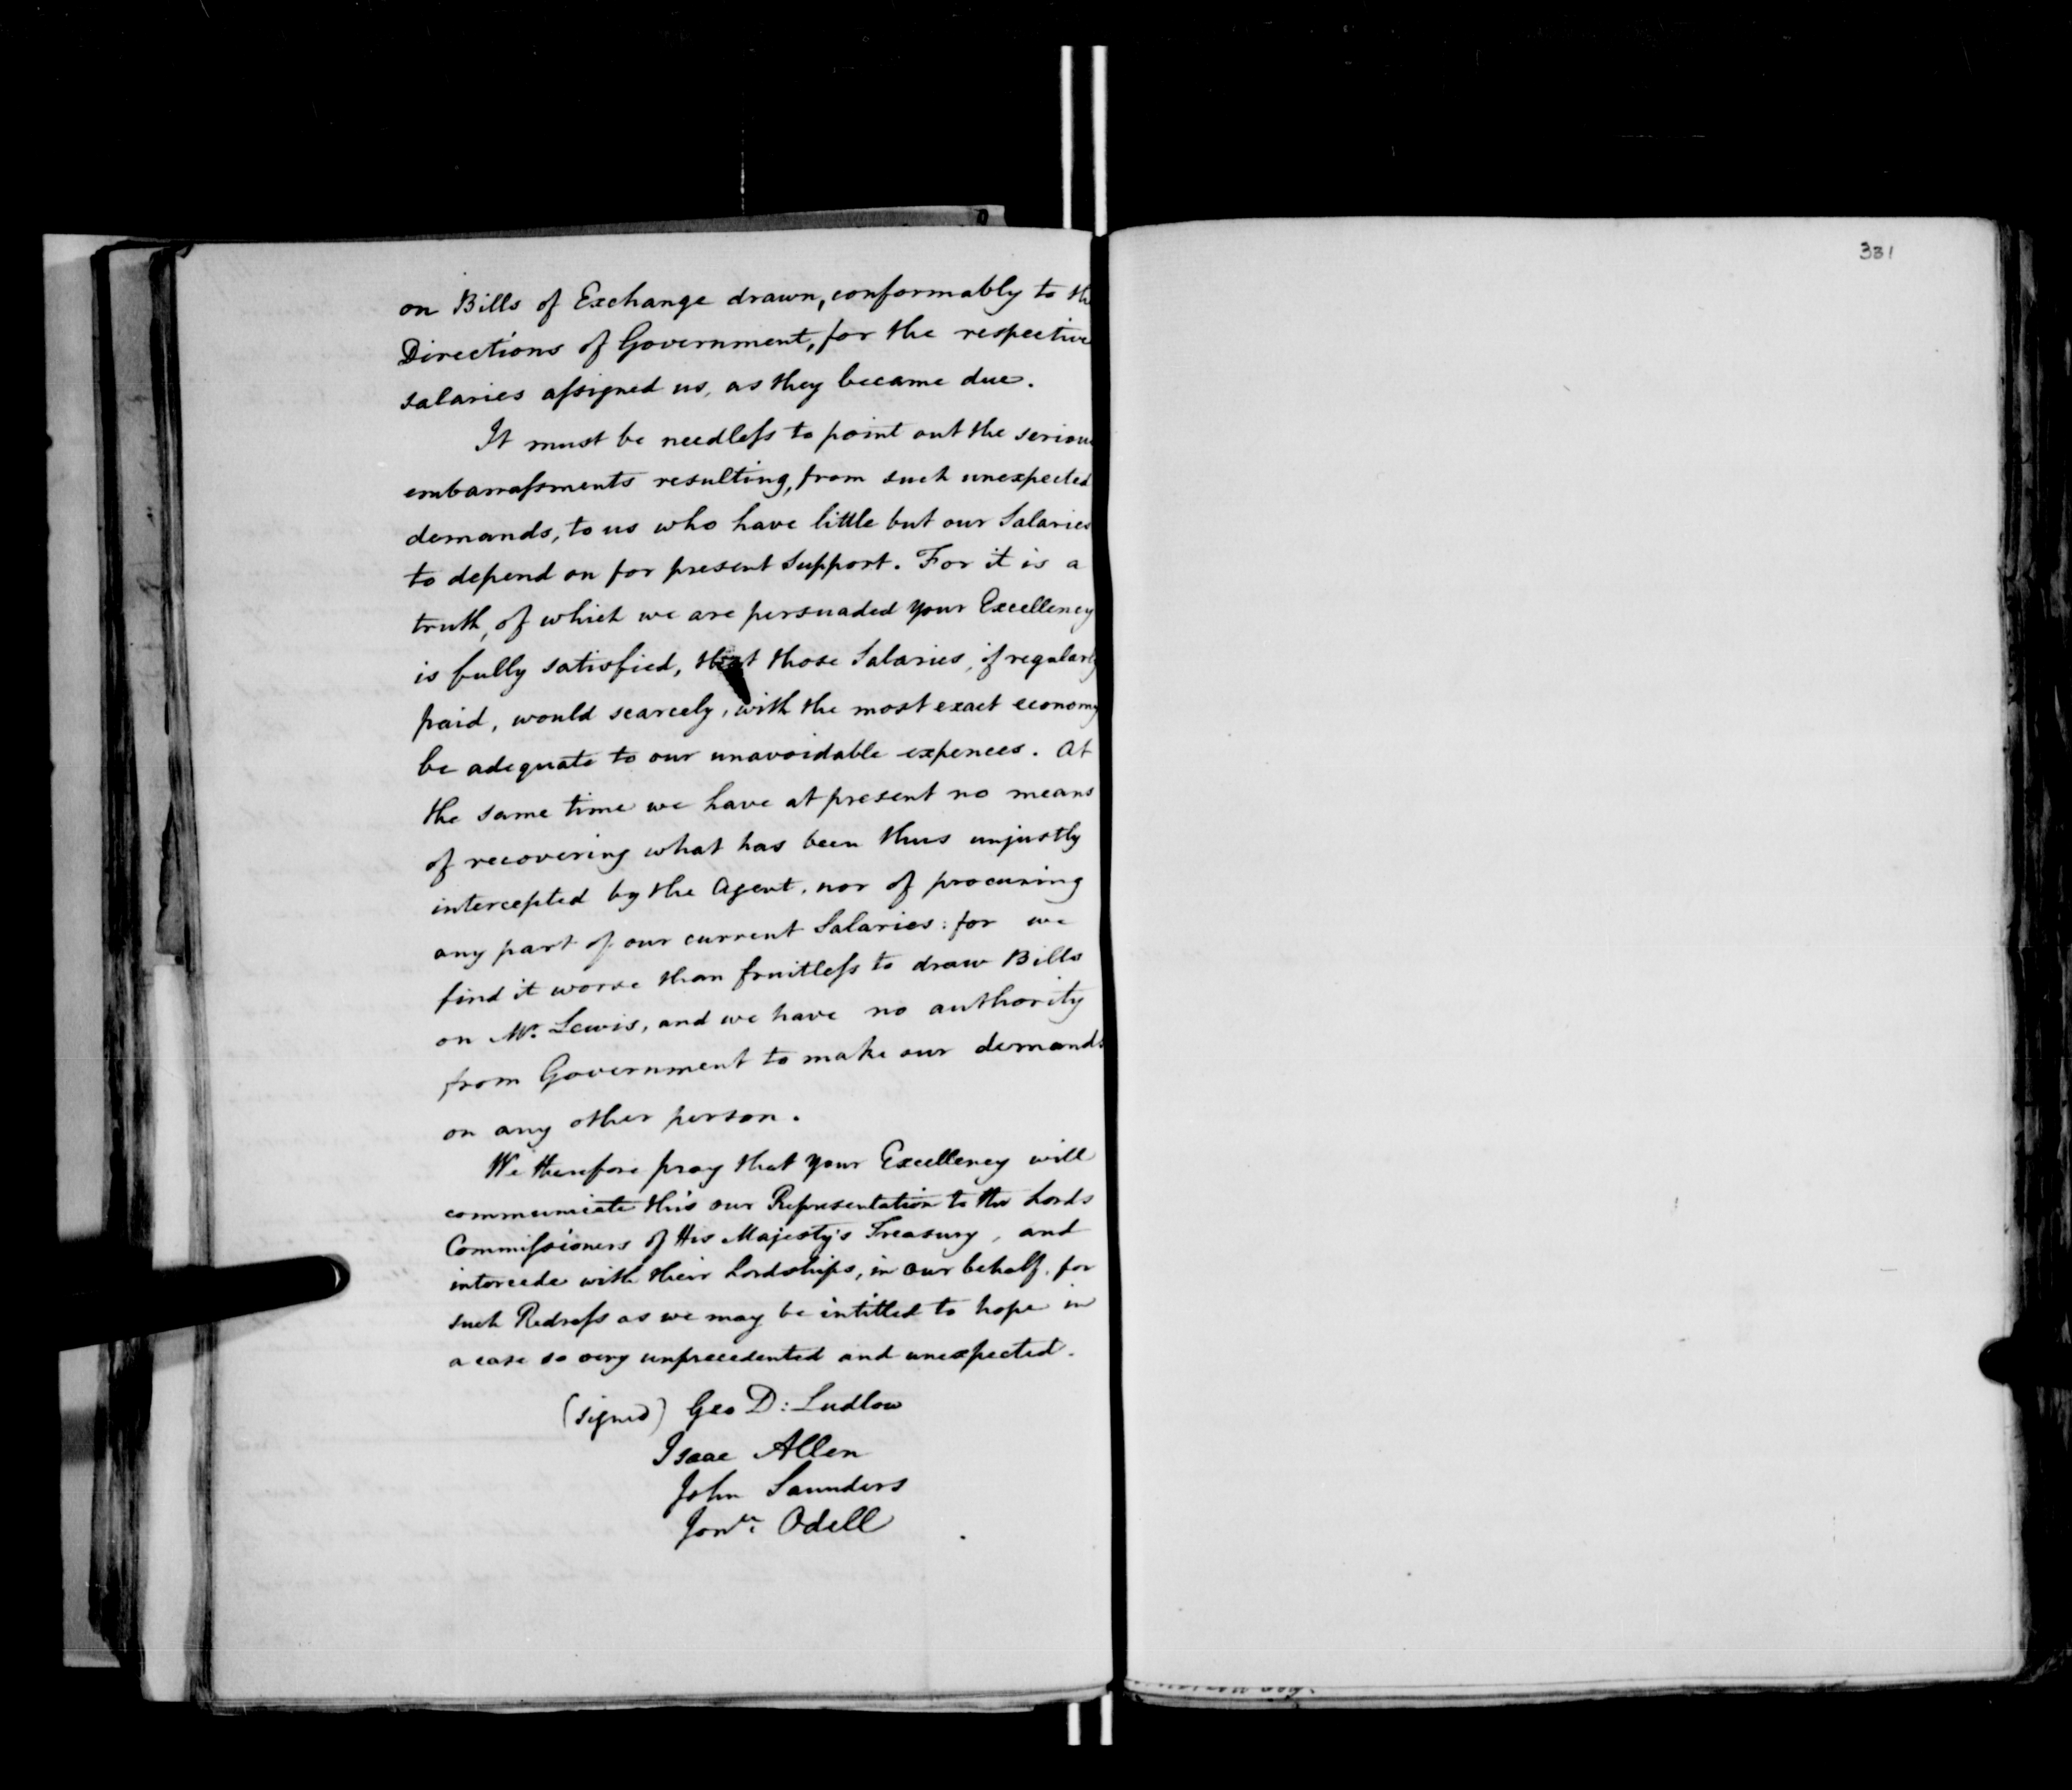 on Bills of Exchange drawn, conformably to the
Directions of Government, for the respective
salaries assigned us, as they became due.
It must be needless to point out the serious
embarrassments resulting, from such unexpected
demands, to us who have little but our Salaries
to depend on for present support. For it is a
truth, of which we are persuaded your Excellency
is fully satisfied, that those Salaries, if regularly
paid, would scarcely, with the most exact economy
be adequate to our unavoidable expences. At
the same time we have at present no means
of recovering what has been thus unjustly
intercepted by the Agent, nor of procuring
any part of our current Salaries: for we
find it worse than fruitless to draw Bills
on Mr. Lewis, and we have no authority
from Government to make our demands
on any other person.
We therefore pray that your Excellency will
communicate this our Representation to the Lords
Commissioners of His Majesty's Treasury, and
intercede with their Lordships, in our behalf, for
such Redress as we may be intitled to hope in
a case so very unprecedented and unexpected.
(signed) Geo D: Ludlow
Isaac Allen
John Saunders
Jonn. Odell
331